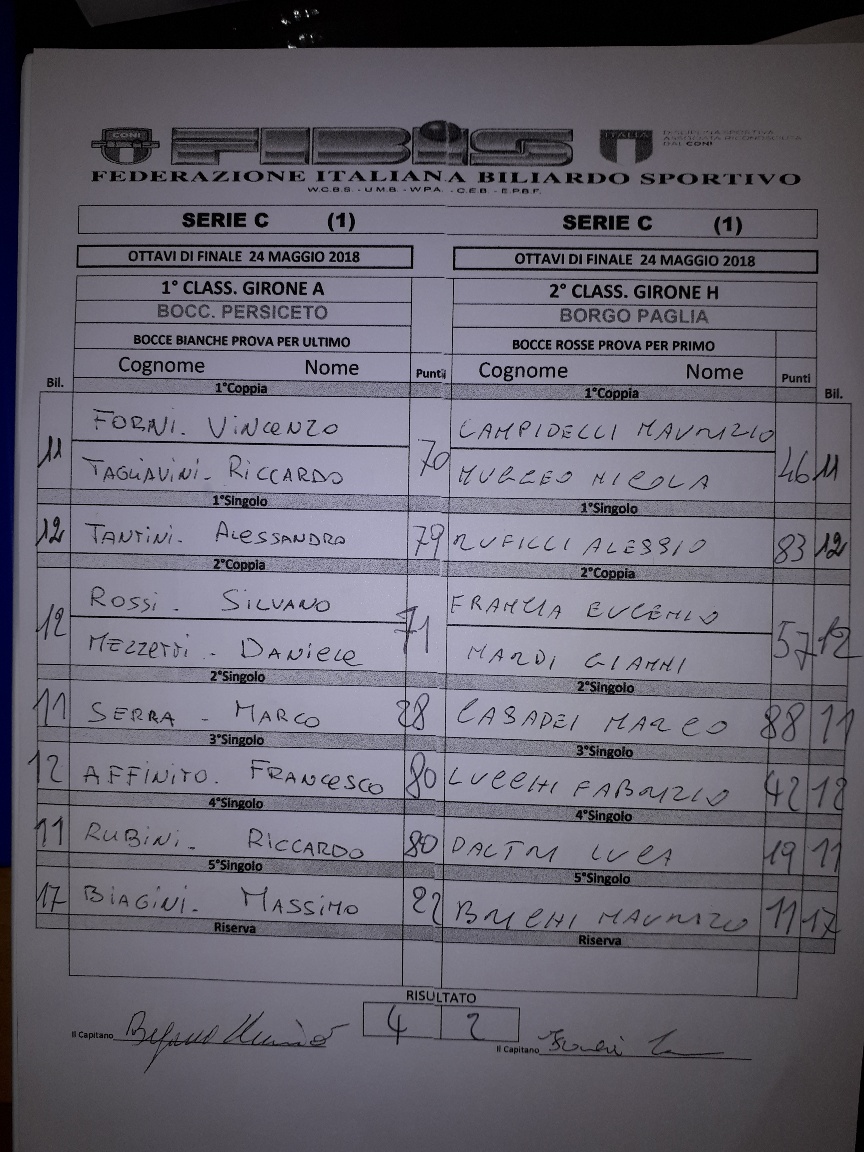 CONI FIBiS ITALIA DISCIPLINA SPORTIVA
ASSOCIATA RICONOSCIUTA
DAL CONI
FEDERAZIONE ITALIANA BILIARDO SPORTIVO
W.C.B.S. - U.M.B. - W.P.A. - C.E.B. - E.P.B.F.
SERIE C (1) SERIE C (1)
OTTAVI DI FINALE 24 MAGGIO 2018 OTTAVI DI FINALE 24 MAGGIO 2018
1° CLASS. GIRONE A 2° CLASS. GIRONE H
BOCC. PERSICETO BORGO PAGLIA
BOCCE BIANCHE PROVA PER ULTIMO BOCCE ROSSE PROVA PER PRIMO
Bil. Cognome Nome Punti Cognome Nome Punti Bil.
1°Coppia 1°Coppia
FORNI. VINCENZO CAMPIDELLI MAURIZIO
11 70 46 11
TAGLIAVINI - RICCARDO NICOLA
1°Singolo 1°Singolo
12 TANTINI. ALESSANDRO 79 RUFILLI ALESSIO 83 12
2°Coppia 2°Coppia
ROSSI. SILVANO FRANCIA EUGENIO
12 71 57 12
MEZZETTI - DANIELE NARDI GIANNI
2°Singolo 2°Singolo
11 SERRA - MARCO 28 CASADEI MARCO 88 11
3°Singolo 3°Singolo
12 AFFINITO. FRANCESCO 80 LUCCHI FABRIZIO 42 12
4°Singolo 4°Singolo
11 RUBINI - RICCARDO 80 DALTRI LUCA 19 11
5°Singolo 5°Singolo
17 BIAGINI. MASSIMO 22 BRICHI MAURIZIO 11 17
Riserva Riserva
RISULTATO
Il Capitano 4 2 Il Capitano